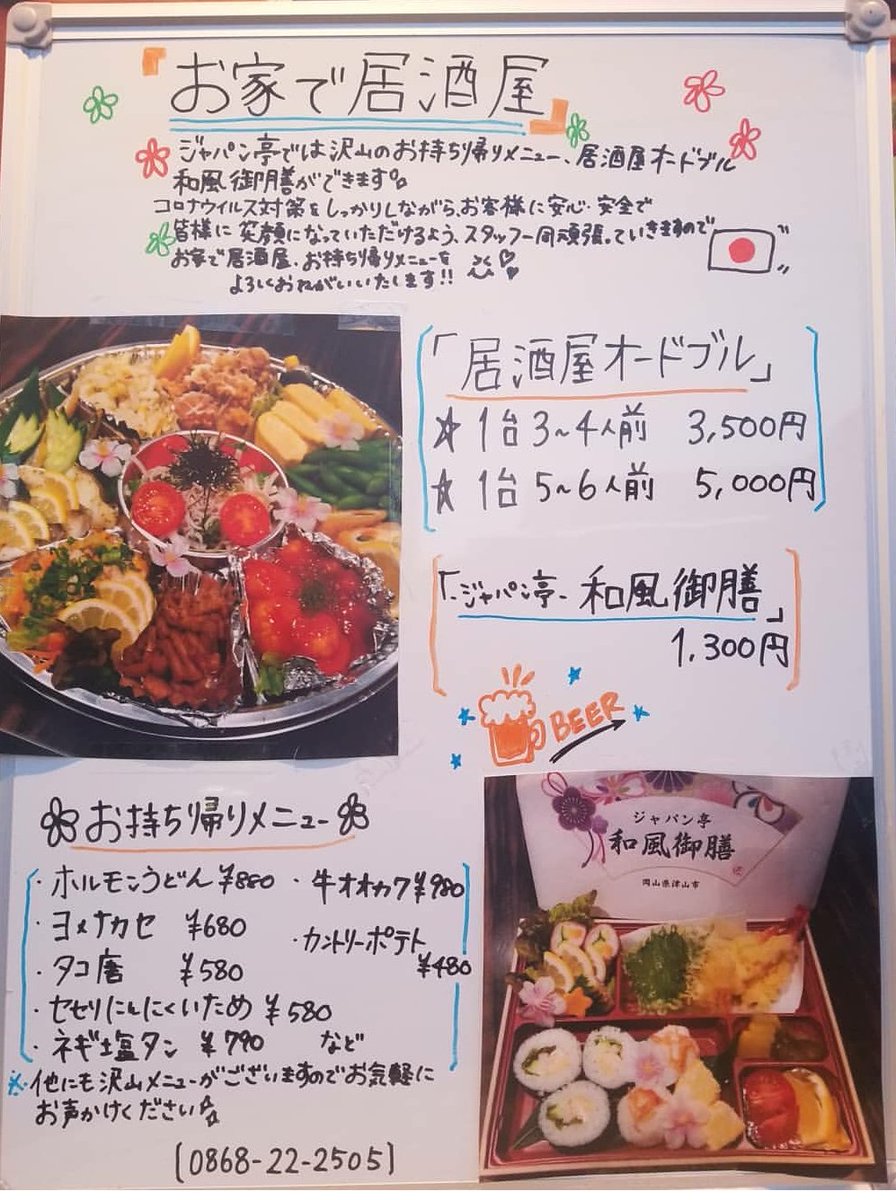 『お家で居酒屋』
ジャパン亭では沢山のお持ち帰りメニュー、居酒屋オードブル
和風御膳ができます。
コロナウイルス対策をしっかりしながら、お客様に安心・安全で
皆様に笑顔になっていただけるよう、スタッフ一同頑張っていきますので
お家で居酒屋、お持ち帰りメニューを
よろしくおねがいいたします!!
「居酒屋オードブル」
☆1台3~4人前 3,500円
☆1台5~6人前 5,000円
「-ジャパン亭- 和風御膳」
1,300円
BEER
お持ち帰りメニュー
・ホルモンうどん ¥880
・ヨメナカセ ¥680
・タコ唐 ¥580
・セセリにんにくいため ¥580
・ネギ塩タン ¥790
・牛オオカワ ¥980
・カントリーポテト
¥480
など
※他にも沢山メニューがございますのでお気軽に
お声かけください。
[0868-22-2505]
ジャパン亭
和風御膳
岡山県津山市